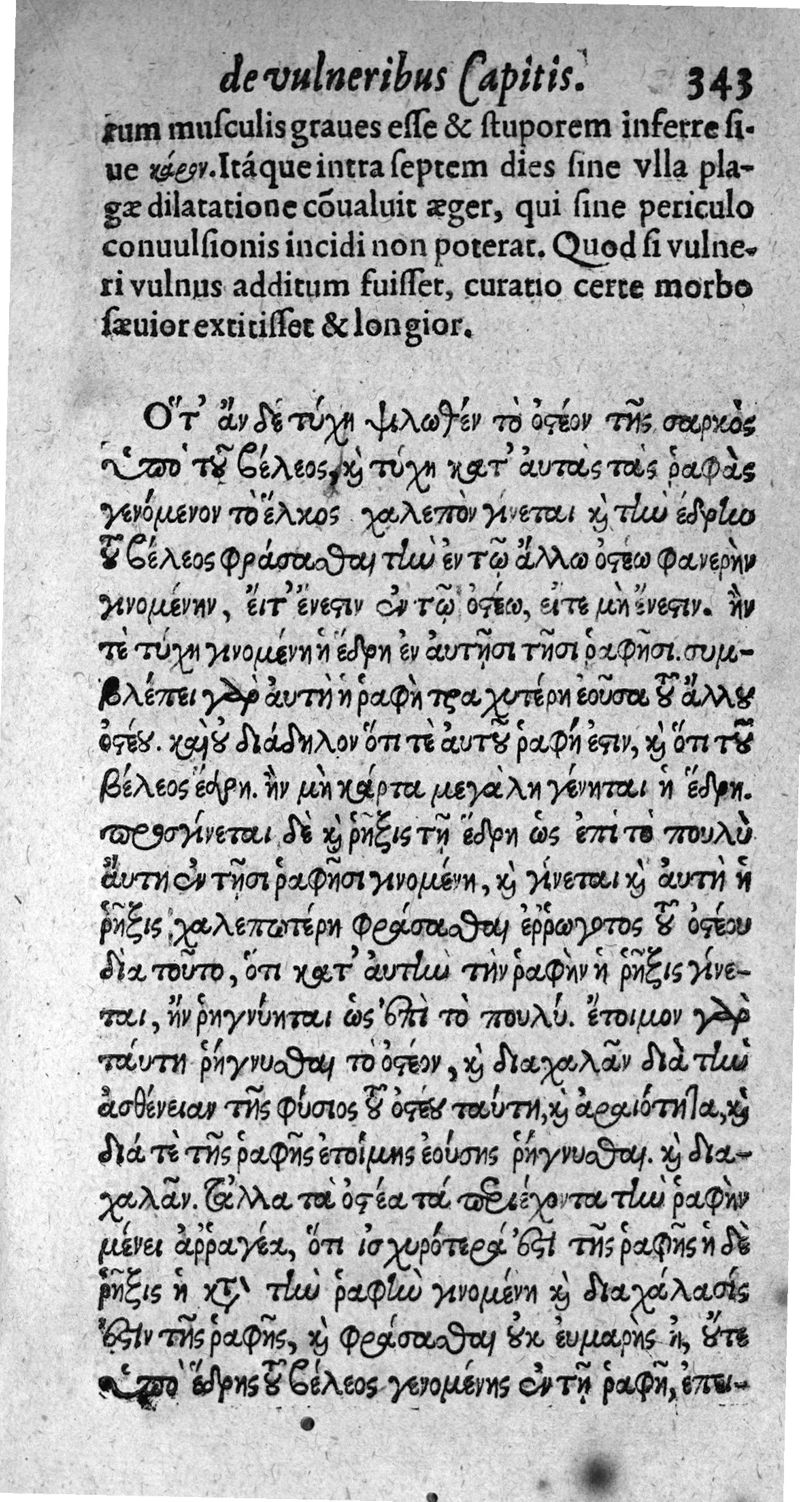 de vulneribus Capitis. 343
rum muſculis graues eſſe & ſtuporem inferre ſi-
ue κάρον. Itáque intra ſeptem dies ſine vlla pla-
gæ dilatatione cōualuit æger, qui ſine periculo
conuulſionis incidi non poterat. Quod ſi vulne-
ri vulnus additum fuiſſet, curatio certe morbo
ſæuior extitiſſet & longior.
Ὅτ' ἄν δὲ τύχη ψιλωθέν τὸ ὀστέον τῆς σαρκὸς
ὑπὸ τοῦ βέλεος, καὶ τύχη κατ' ἀυτὰς τὰς ῥαφὰς
γενόμενον τὸ ἕλκος χαλεπὸν γίνεται καὶ τὴν ἕδρην
τοῦ βέλεος φράσασθαι τὴν ἐν τῷ ἄλλω ὀστέω φανερὴν
γινομένην, ἔιτ' ἔνεστιν ἐν τῷ ὀστέω, εἴτε μὴ ἔνεστιν. ἢν
τὲ τύχη γινομένη ἡ ἕδρη ἐν ἀυτῇσι τῇσι ῥαφῇσι. συμ-
βλέπει γὰρ ἀυτὴ ἡ ῥαφὴ τραχυτέρη ἐοῦσα τοῦ ἄλλου
ὀστέου. καὶ οὐ διάδηλον ὅτι τὲ ἀυτοῦ ῥαφή ἐστιν, καὶ ὅτι τοῦ
βέλεος ἕδρη. ἢν μὴ κάρτα μεγάλη γένηται ἡ ἕδρη.
προσγίνεται δὲ καὶ ῥῆξις τῇ ἕδρη ὡς ἐπὶ τὸ πουλὺ
ἅυτη ἐν τῇσι ῥαφῇσι γινομένη, καὶ γίνεται καὶ ἀυτὴ ἡ
ῥῆξις χαλεπωτέρη φράσασθαι ἐῤῥωγοτος τοῦ ὀστέου
διὰ τοῦτο, ὅτι κατ' ἀυτὴν τὴν ῥαφὴν ἡ ῥῆξις γίνε-
ται, ἤν ῥηγνύηται ὡς ἐπὶ τὸ πουλύ. ἕτοιμον γὰρ
τάυτη ῥήγνυσθαι τὸ ὀστέον, καὶ διαχαλᾶν διὰ τὴν
ἀσθένειαν τῆς φύσιος τοῦ ὀστέου ταύτη, καὶ ἀραιότητα, καὶ
διά τὲ τῆς ῥαφῆς ἑτοίμης ἐούσης ῥήγνυσθαι. καὶ δια-
χαλᾶν. Τἄλλα τὰ ὀστέα τὰ περιέχοντα τὴν ῥαφὴν
μένει ἀῤῥαγέα, ὅτι ἰσχυρότερά ἐστι τῆς ῥαφῆς ἡ δὲ
ῥῆξις ἡ κατὰ τὴν ῥαφὴν γινομένη καὶ διαχάλασίς
ἐστιν τῆς ῥαφῆς, καὶ φράσασθαι οὐκ ἐυμαρὴς ἠ, οὔτε
ὑπὸ ἕδρης τοῦ βέλεος γενομένης ἐν τῇ ῥαφῇ, ἐπει-